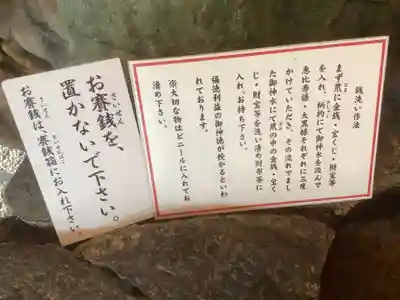 お賽銭を、
置かないで下さい。
お賽銭は賽銭箱にお入れ下さい。
銭洗い作法
まず笊に金銭・宝くじ・財宝等
を入れ、柄杓にて御神水を汲んで
恵比寿様・大黒様それぞれに三座
かけていただき、その流れでまし
た御神水にて笊の中の金銭・宝く
じ・財宝等を洗い清め財布等に
入れ、お持ち下さい。
福徳利益の御神徳が授かるといわ
れております。
※大切な物はビニールに入れてお
清め下さい。